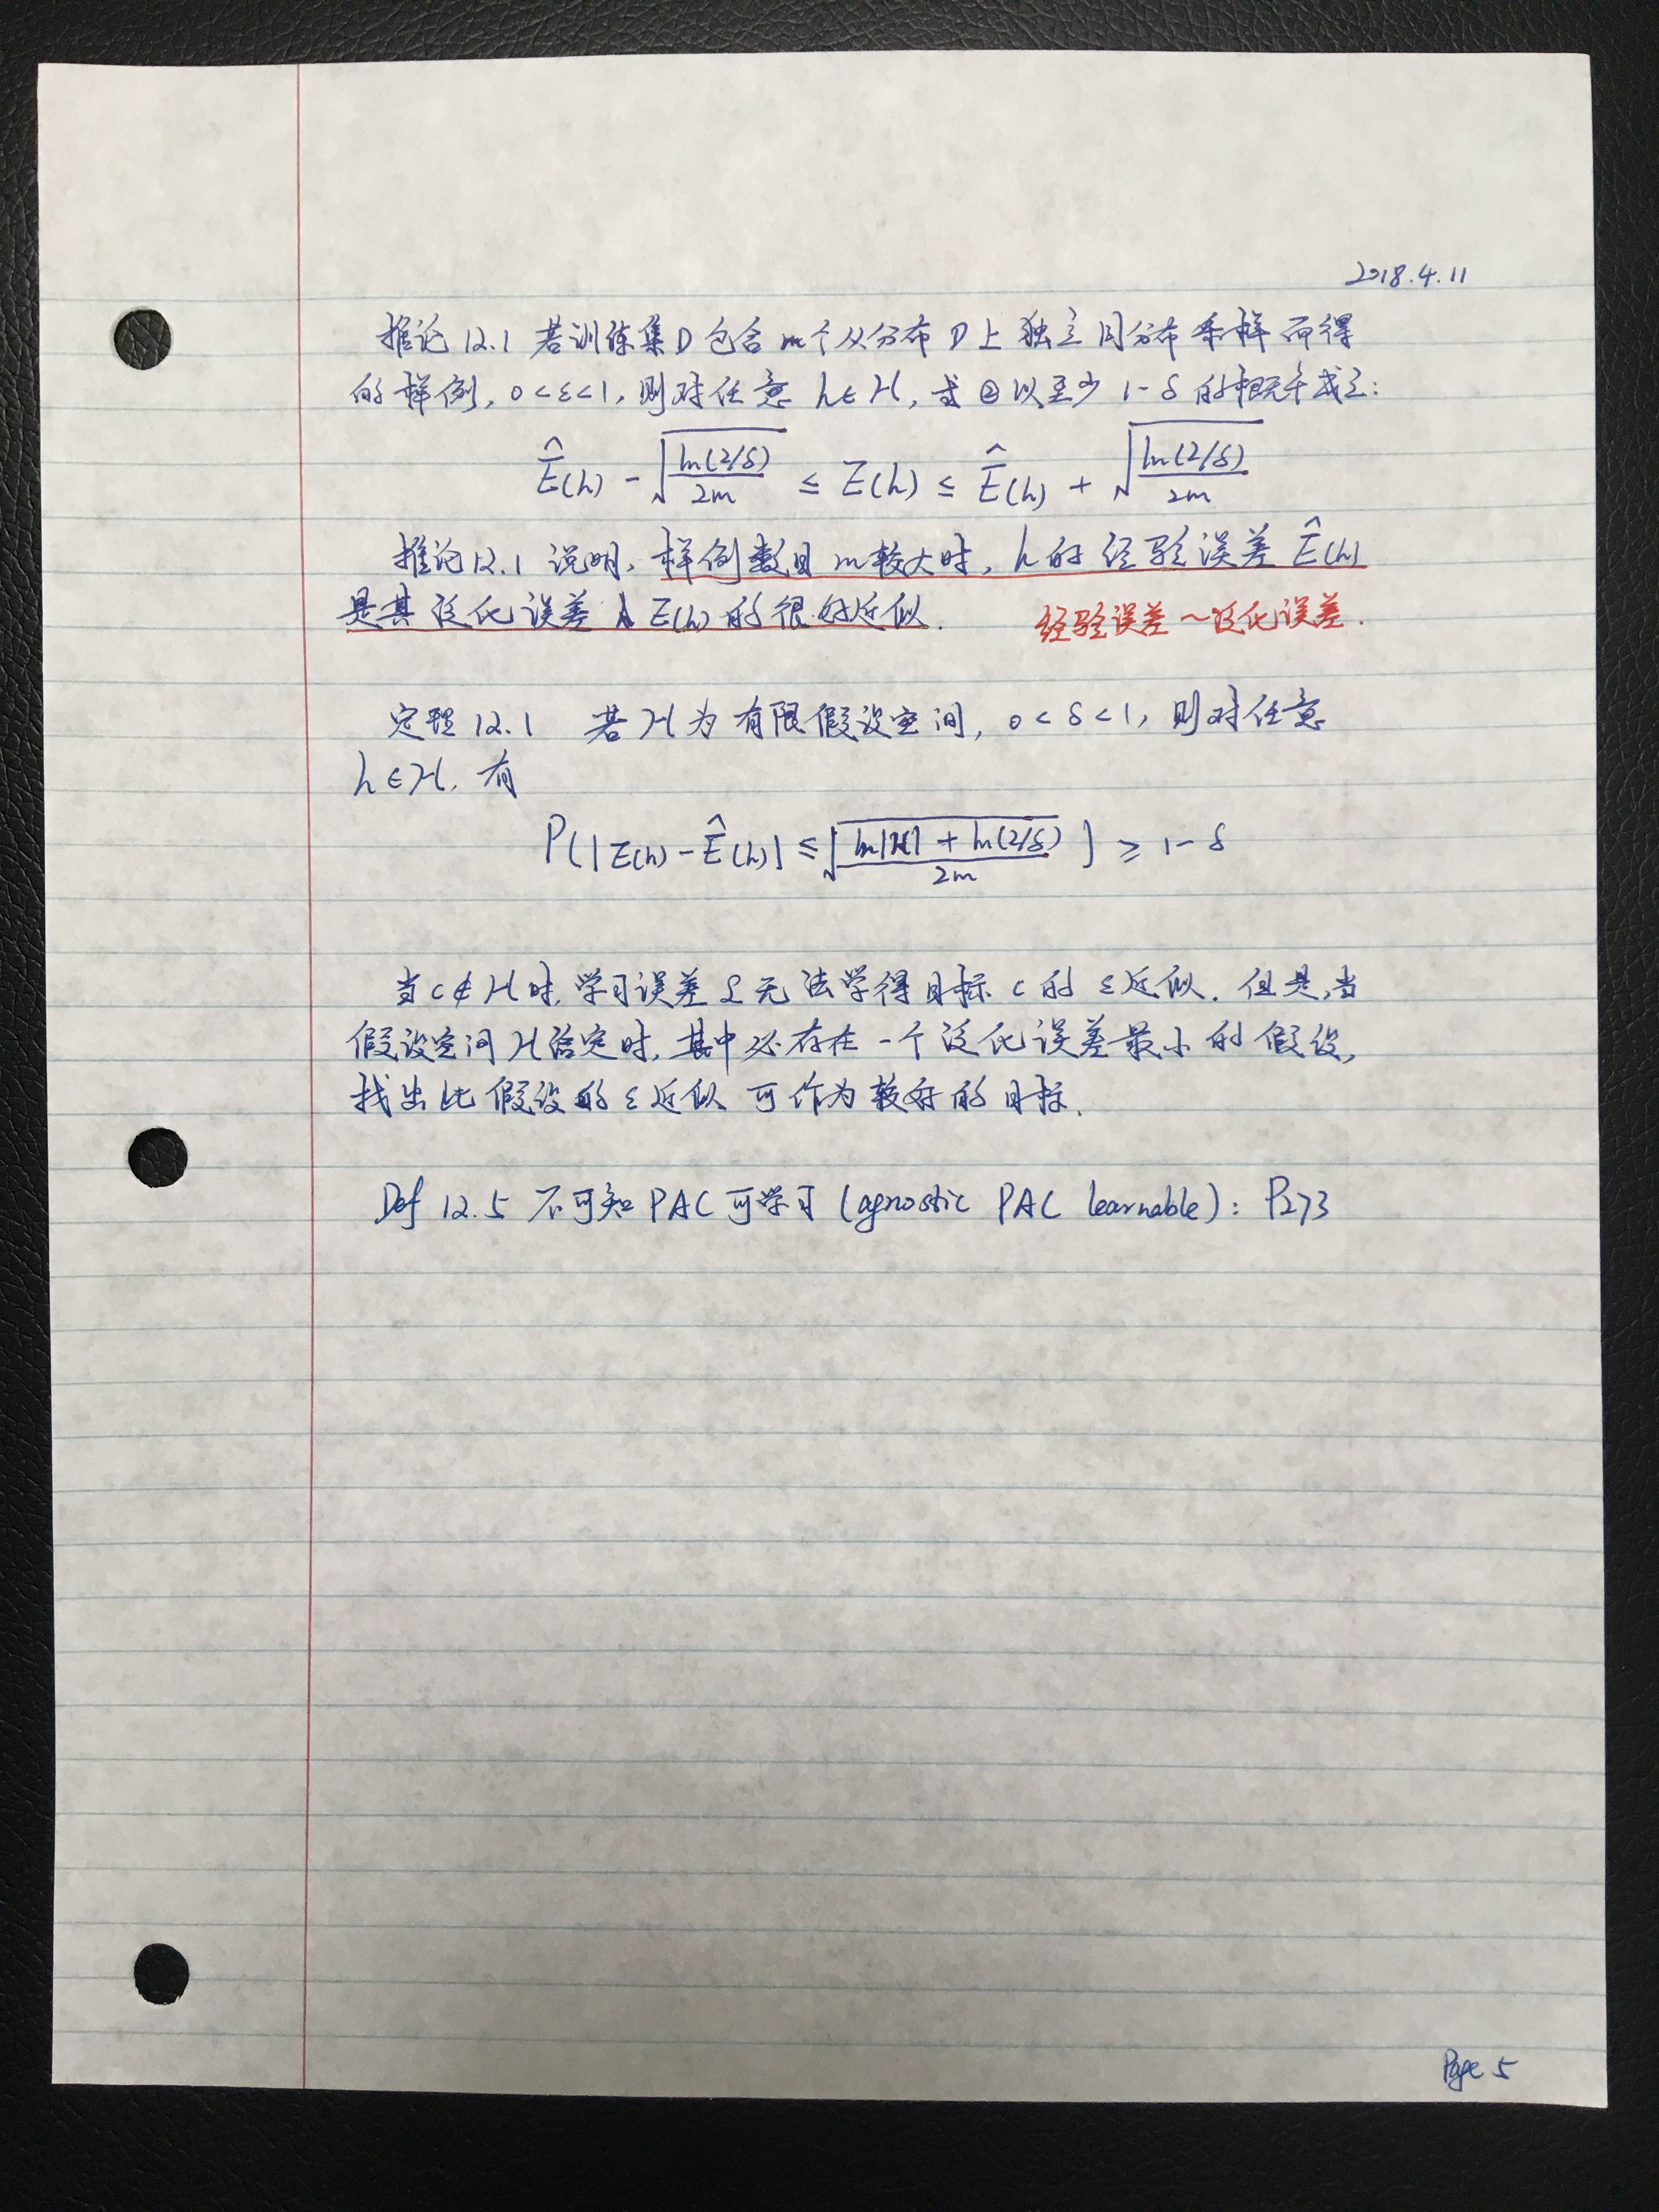 2018.4.11
推论 12.1 若训练集 D 包含 m个从分布 D 上 独立同分布采样而得
的样例, 0<ε<1, 则对任意 h∈H, 式②以至少 1-δ 的概率成立:
Ê(h) - √(ln(2/δ)/2m) ≤ E(h) ≤ Ê(h) + √(ln(2/δ)/2m)
推论12.1 说明, 样例数目 m较大时, h 的 经验误差 Ê(h)
是其泛化误差 E(h) 的很好近似.
经验误差~泛化误差.
定理 12.1 若 H 为有限假设空间, 0<δ<1, 则对任意
h∈H, 有
P(|E(h)-Ê(h)| ≤ √((ln|H| + ln(2/δ))/2m)) ≥ 1-δ
当 c∉H 时, 学习误差 L 无法学得目标 c 的 ε近似. 但是,当
假设空间 H 给定时, 其中必存在一个泛化误差最小的假设,
找出此假设的 ε近似 可作为较好的目标.
Def 12.5 不可知 PAC 可学习 (agnostic PAC learnable): P273
Page 5